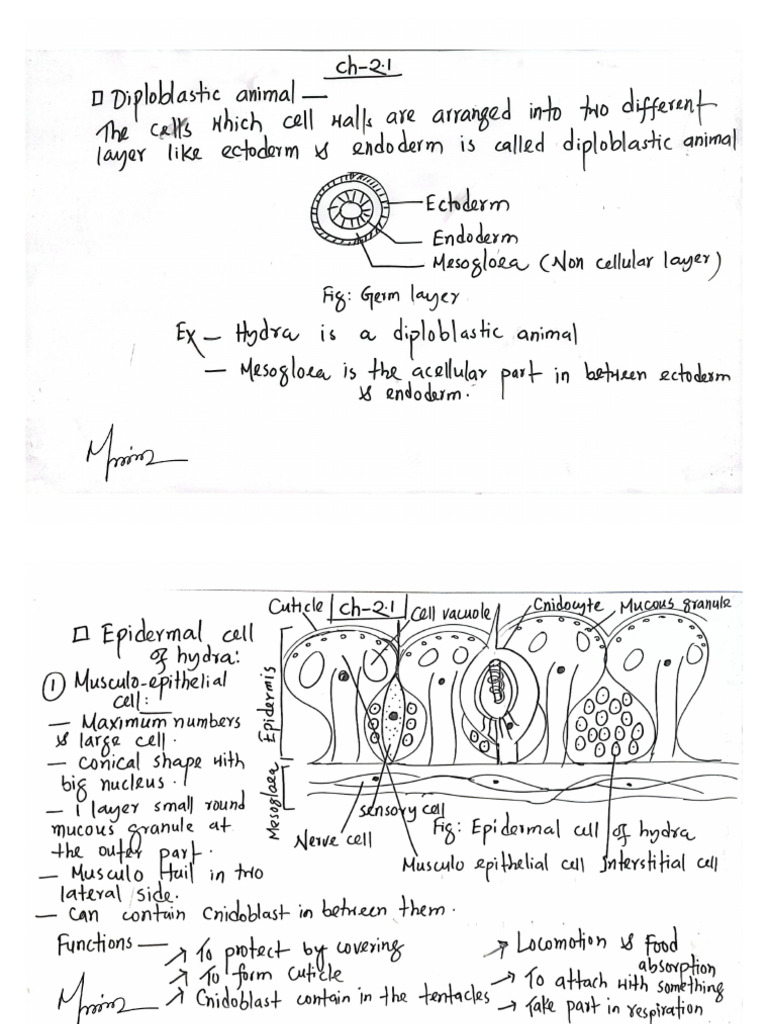 Ch-2.1
Diploblastic animal —
The cells which cell walls are arranged into two different
layer like ectoderm & endoderm is called diploblastic animal
Ectoderm
Endoderm
Mesogloea (Non cellular layer)
Fig: Germ layer
Ex — Hydra is a diploblastic animal
— Mesogloea is the acellular part in between ectoderm
& endoderm.
Cuticle
Ch-2.1
Cell vacuole
Cnidocyte
Mucous granule
Epidermal cell
of hydra:
① Musculo-epithelial
cell:
— Maximum numbers
& large cell.
— Conical shape with
big nucleus.
— 1 layer small round
mucous granule at
the outer part.
— Musculo tail in two
lateral side.
— Can contain Cnidoblast in between them.
Epidermis
Mesogloea
Sensory cell
Nerve cell
Fig: Epidermal cell of hydra
Musculo epithelial cell
Interstitial cell
Functions —
→ To protect by covering
→ To form cuticle
→ Cnidoblast contain in the tentacles
→ Locomotion & Food
absorption
→ To attach with something
→ Take part in respiration